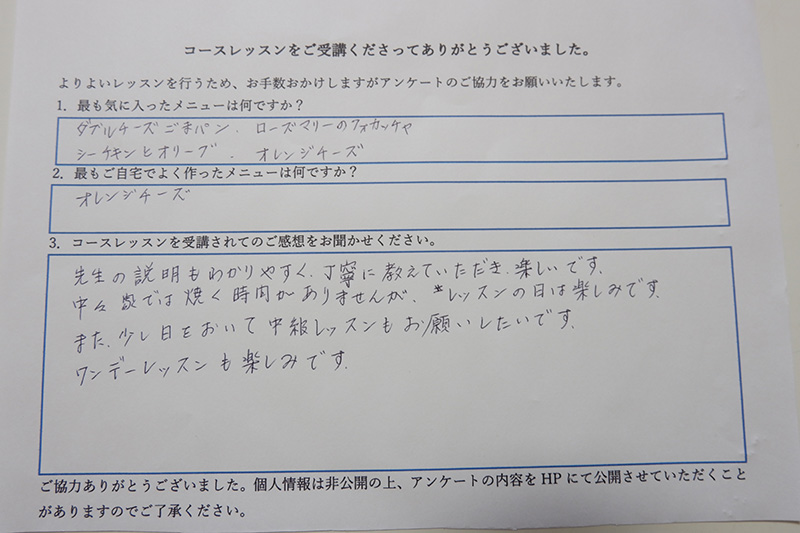 コースレッスンをご受講くださってありがとうございました。
よりよいレッスンを行うため、お手数おかけしますがアンケートのご協力をお願いいたします。
1. 最も気に入ったメニューは何ですか?
ダブルチーズごまパン、ローズマリーのフォカッチャ
シーチキンとオリーブ、オレンジチーズ
2. 最もご自宅でよく作ったメニューは何ですか?
オレンジチーズ
3. コースレッスンを受講されてのご感想をお聞かせください。
先生の説明もわかりやすく、丁寧に教えていただき、楽しいです。
中々家では焼く時間がありませんが、*レッスンの日は楽しみです。
また、少し日をおいて中級レッスンもお願いしたいです。
ワンデーレッスンも楽しみです。
ご協力ありがとうございました。個人情報は非公開の上、アンケートの内容をHPにて公開させていただくこと
がありますのでご了承ください。